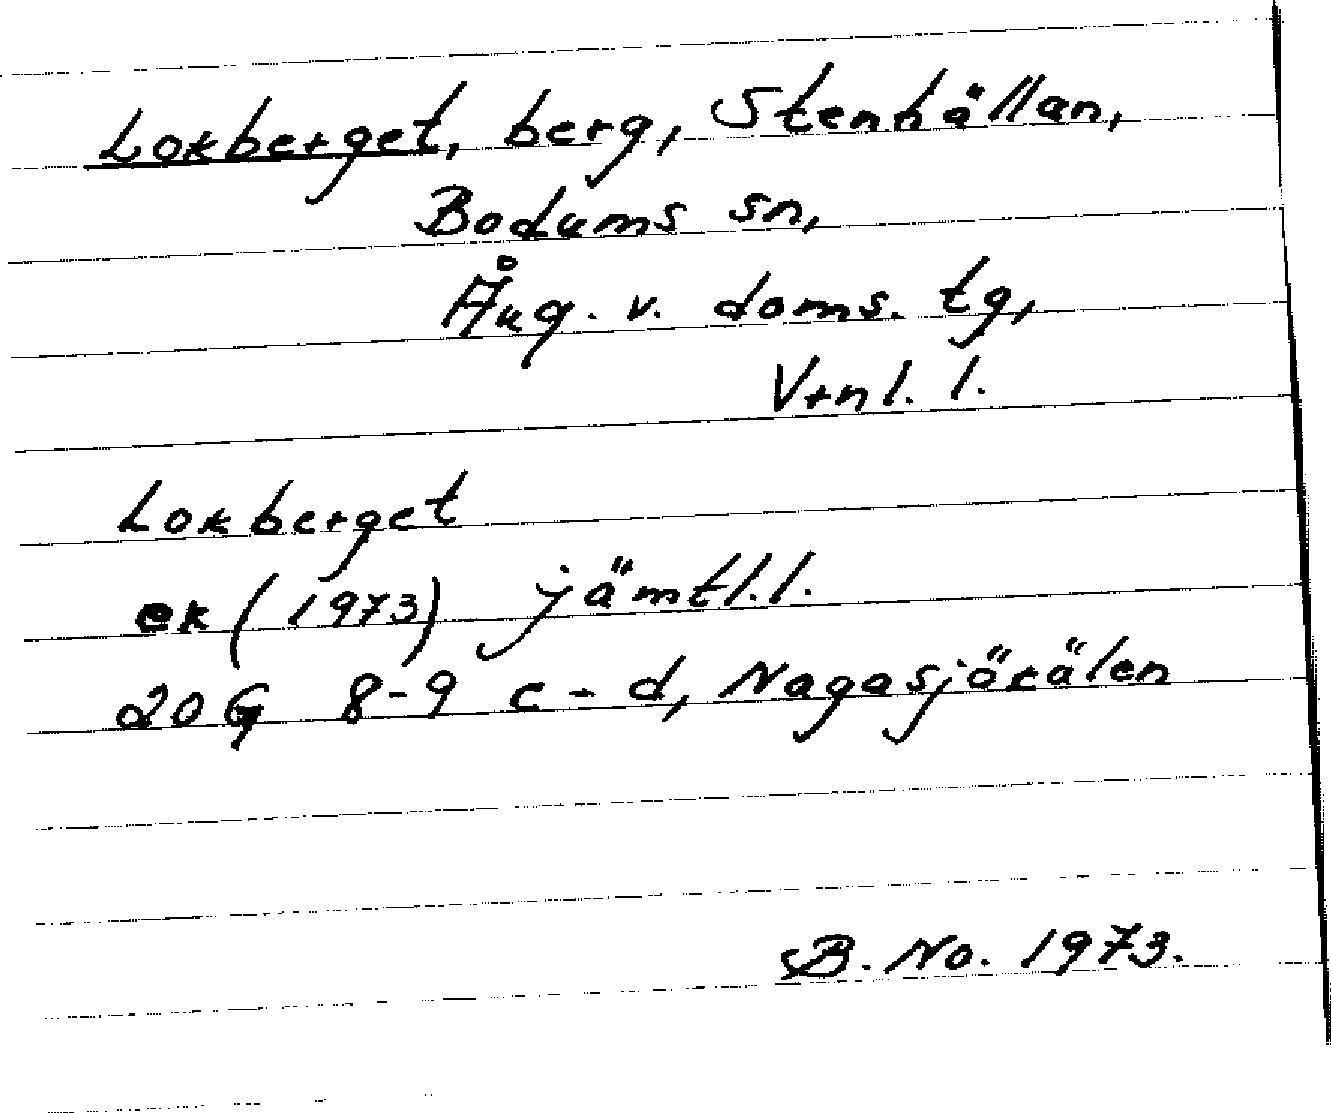 Lokberget, berg, Stenhällan,
Bodums sn,
Ång. v. doms. tg,
Vrnl. l.
Lokberget
ek (1973) jämtl.l.
20 G 8-9 c-d, Nagasjökälen
B. No. 1973.